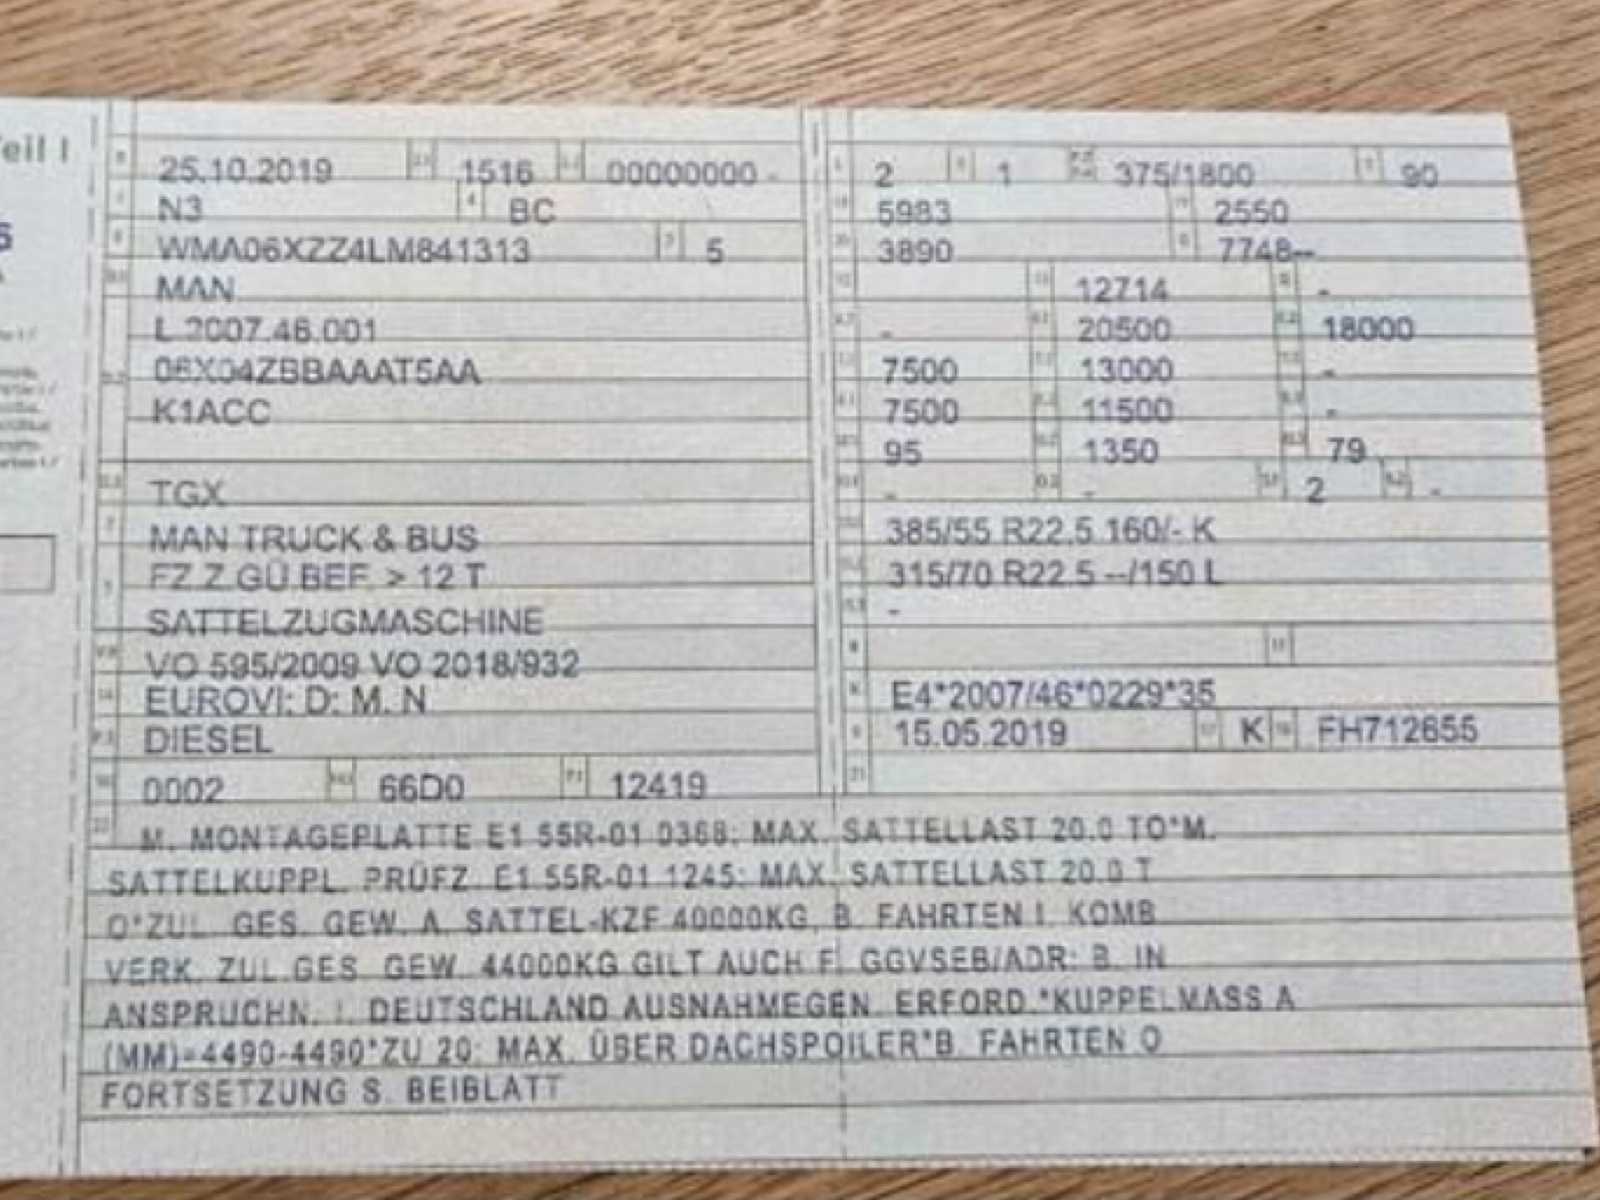 eil I
25.10.2019 1516 00000000 -
N3 BC
WMA06XZZ4LM841313 5
MAN
L.2007.46.001
06X04ZBBAAAT5AA
K1ACC
TGX
MAN TRUCK & BUS
FZ.Z.GÜ.BEF. > 12 T
SATTELZUGMASCHINE
VO 595/2009 VO 2018/932
EUROVI; D; M, N
DIESEL
0002 66D0 12419
2 1 375/1800 90
5983 2550
3890 7748--
12714 -
- 20500 18000
7500 13000 -
7500 11500 -
95 1350 79
- - 2 -
385/55 R22.5 160/- K
315/70 R22.5 --/150 L
-
E4*2007/46*0229*35
15.05.2019 K FH712655
21
22 M. MONTAGEPLATTE E1 55R-01 0368: MAX. SATTELLAST 20.0 TO*M.
SATTELKUPPL. PRÜFZ. E1 55R-01 1245: MAX. SATTELLAST 20.0 T
O*ZUL. GES. GEW. A. SATTEL-KZF 40000KG, B. FAHRTEN I. KOMB
VERK. ZUL.GES. GEW. 44000KG GILT AUCH F. GGVSEB/ADR: B. IN
ANSPRUCHN. I. DEUTSCHLAND AUSNAHMEGEN. ERFORD.*KUPPELMASS A
(MM)=4490-4490*ZU 20: MAX. ÜBER DACHSPOILER*B. FAHRTEN O
FORTSETZUNG S. BEIBLATT